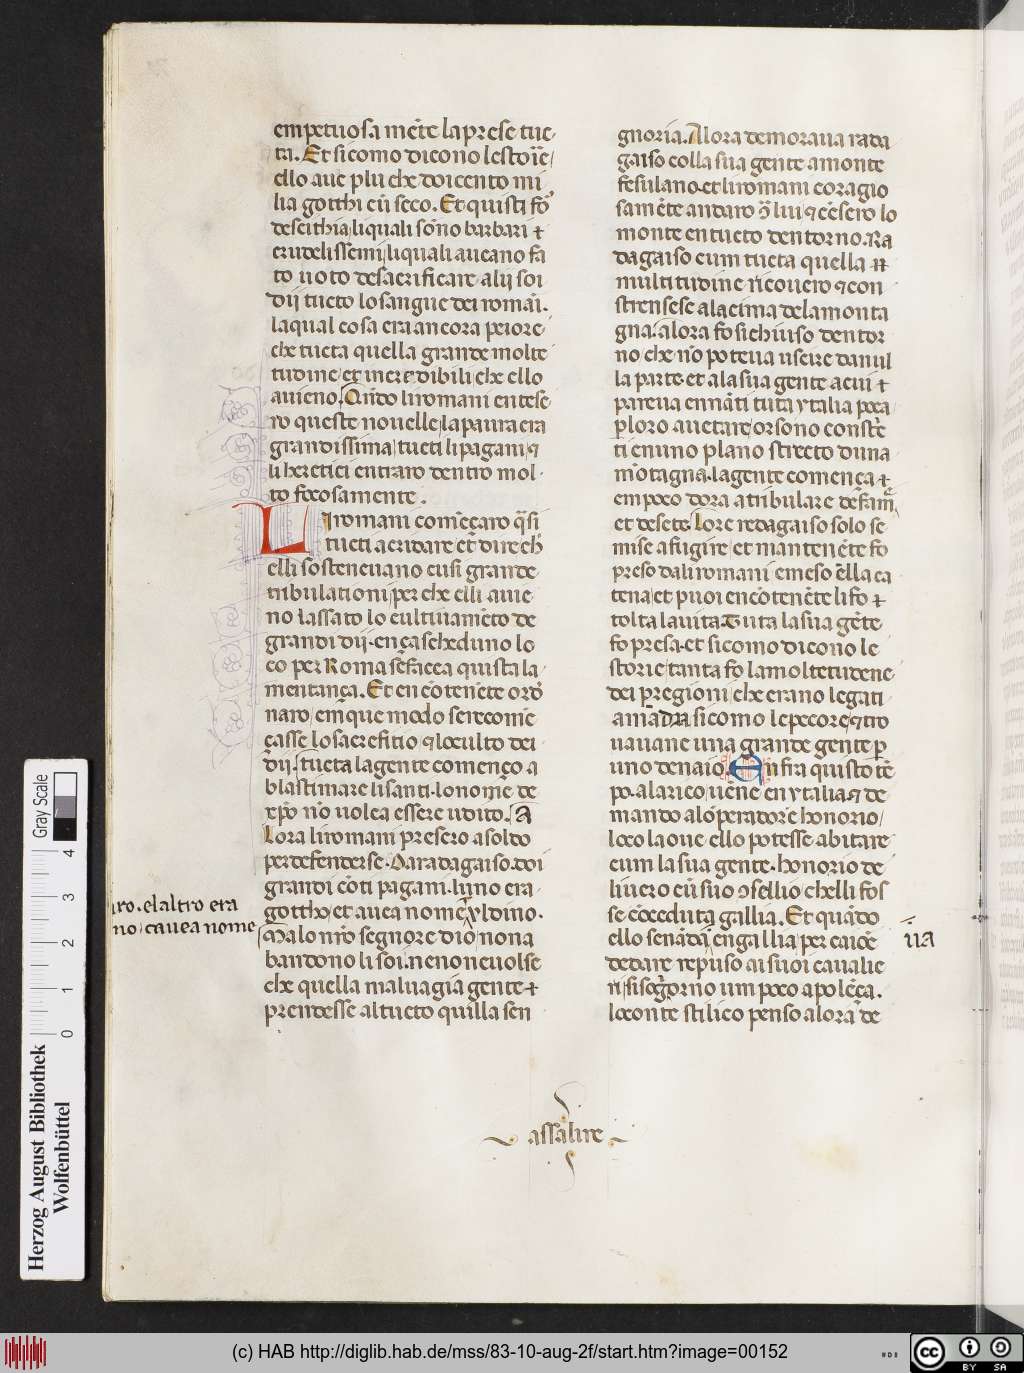 empetuosa mēte la prese tuc
ta. Et si como dicono le stoīe
ello aue plu che doicento mi
lia gotthi cū seco. Et quisti fō
de scithia li quali sōno barbari ⁊
crudelissemi li quali aueano fa
to uoto de sacrificare alij soi
dij tucto lo sangue dei romāi.
la qual cosa era ancora peiore
che tucta quella grande molte
tudine et incredibili che ello
auieno. Qn̄do li romani entese
ro queste nouelle la paura era
grandissima tucti li pagani ⁊
li heretici entraro dentro mol
to focosamente.
Li romani comēcaro q̄si
tucti a cridare et dire ch̄
elli sosteneuano cusi grande
tribulationi per che elli auie
no lassato lo cultiuamēto de
grandi dij. en ça scheduno lo
co per Roma se facea quista la
mentança. Et en cōtenēte ordi
naro em̄que modo se recomē
çasse lo sacrefitio ⁊ lo culto dei
dij. tucta la gente començo a
blastimare li santi. lo nome de
xp̄o nō uolea essere udito. A
lora li romani presero a soldo
per defenderse. Da radagaiso. doi
grandi cōti pagani. luno era
gottho, et auea nome xldino.
Ma lo nr̄o segnore dio non a
bandono li soi. ne non euolse
che quella maluagia gente ⁊
prendesse al tucto quilla sen
ro. el altro era
no cauea nome
gnoria. Alora demoraua rada
gaiso colla sua gente a monte
fesulano et li romani coragio
samēte andaro ꝯ lui ⁊ cēsero lo
monte en tucto den torno. Ra
dagaiso cum tucta quella
multitudine ricouero ⁊ con
strensese a la cima de la monta
gna. alora fo si chiuso den tor
no, che nō poteua uscire da nul
la parte. et a la sua gente a cui ⁊
pareua ennāti tuta ytalia poca
ꝑ loro auetare, or sono constr̄e
ti en uno plano strecto duna
mōtagna. la gente comença ⁊
em poco dora a tribulare de fam̄
et de sete. Lo re redagaiso solo se
mise a fugire et mantenēte fo
preso da li romani e meso ēlla ca
tena et puoi encōtenēte li fo ⁊
tolta la uita. Tuta la sua gēte
fo presa. et si como dicono le
storie, tanta fo la moltetudene
dei pregioni che erano legati
a mādra si como le pecore, ⁊ tro
uauane una grande gente ꝑ
uno denaio. Enfra quisto tē
po. alarico uēne en ytalia ⁊ de
mando alo perador̄e honorio
loco la oue ello potesse abitare
cum la sua gente. honorio de
liuero cū suo ꝯsellio che lli fos
se cōceduta gallia. Et quādo
ello se nādā en gallia per caiōe
de dare repuso ai suoi caualie
ri, si sogiorno um poco a polēça.
lo conte stilico penso alora de
ua
assalire
Herzog August Bibliothek
Wolfenbüttel
0 1 2 3 4
Gray Scale
(c) HAB http://diglib.hab.de/mss/83-10-aug-2f/start.htm?image=00152
cc
BY SA